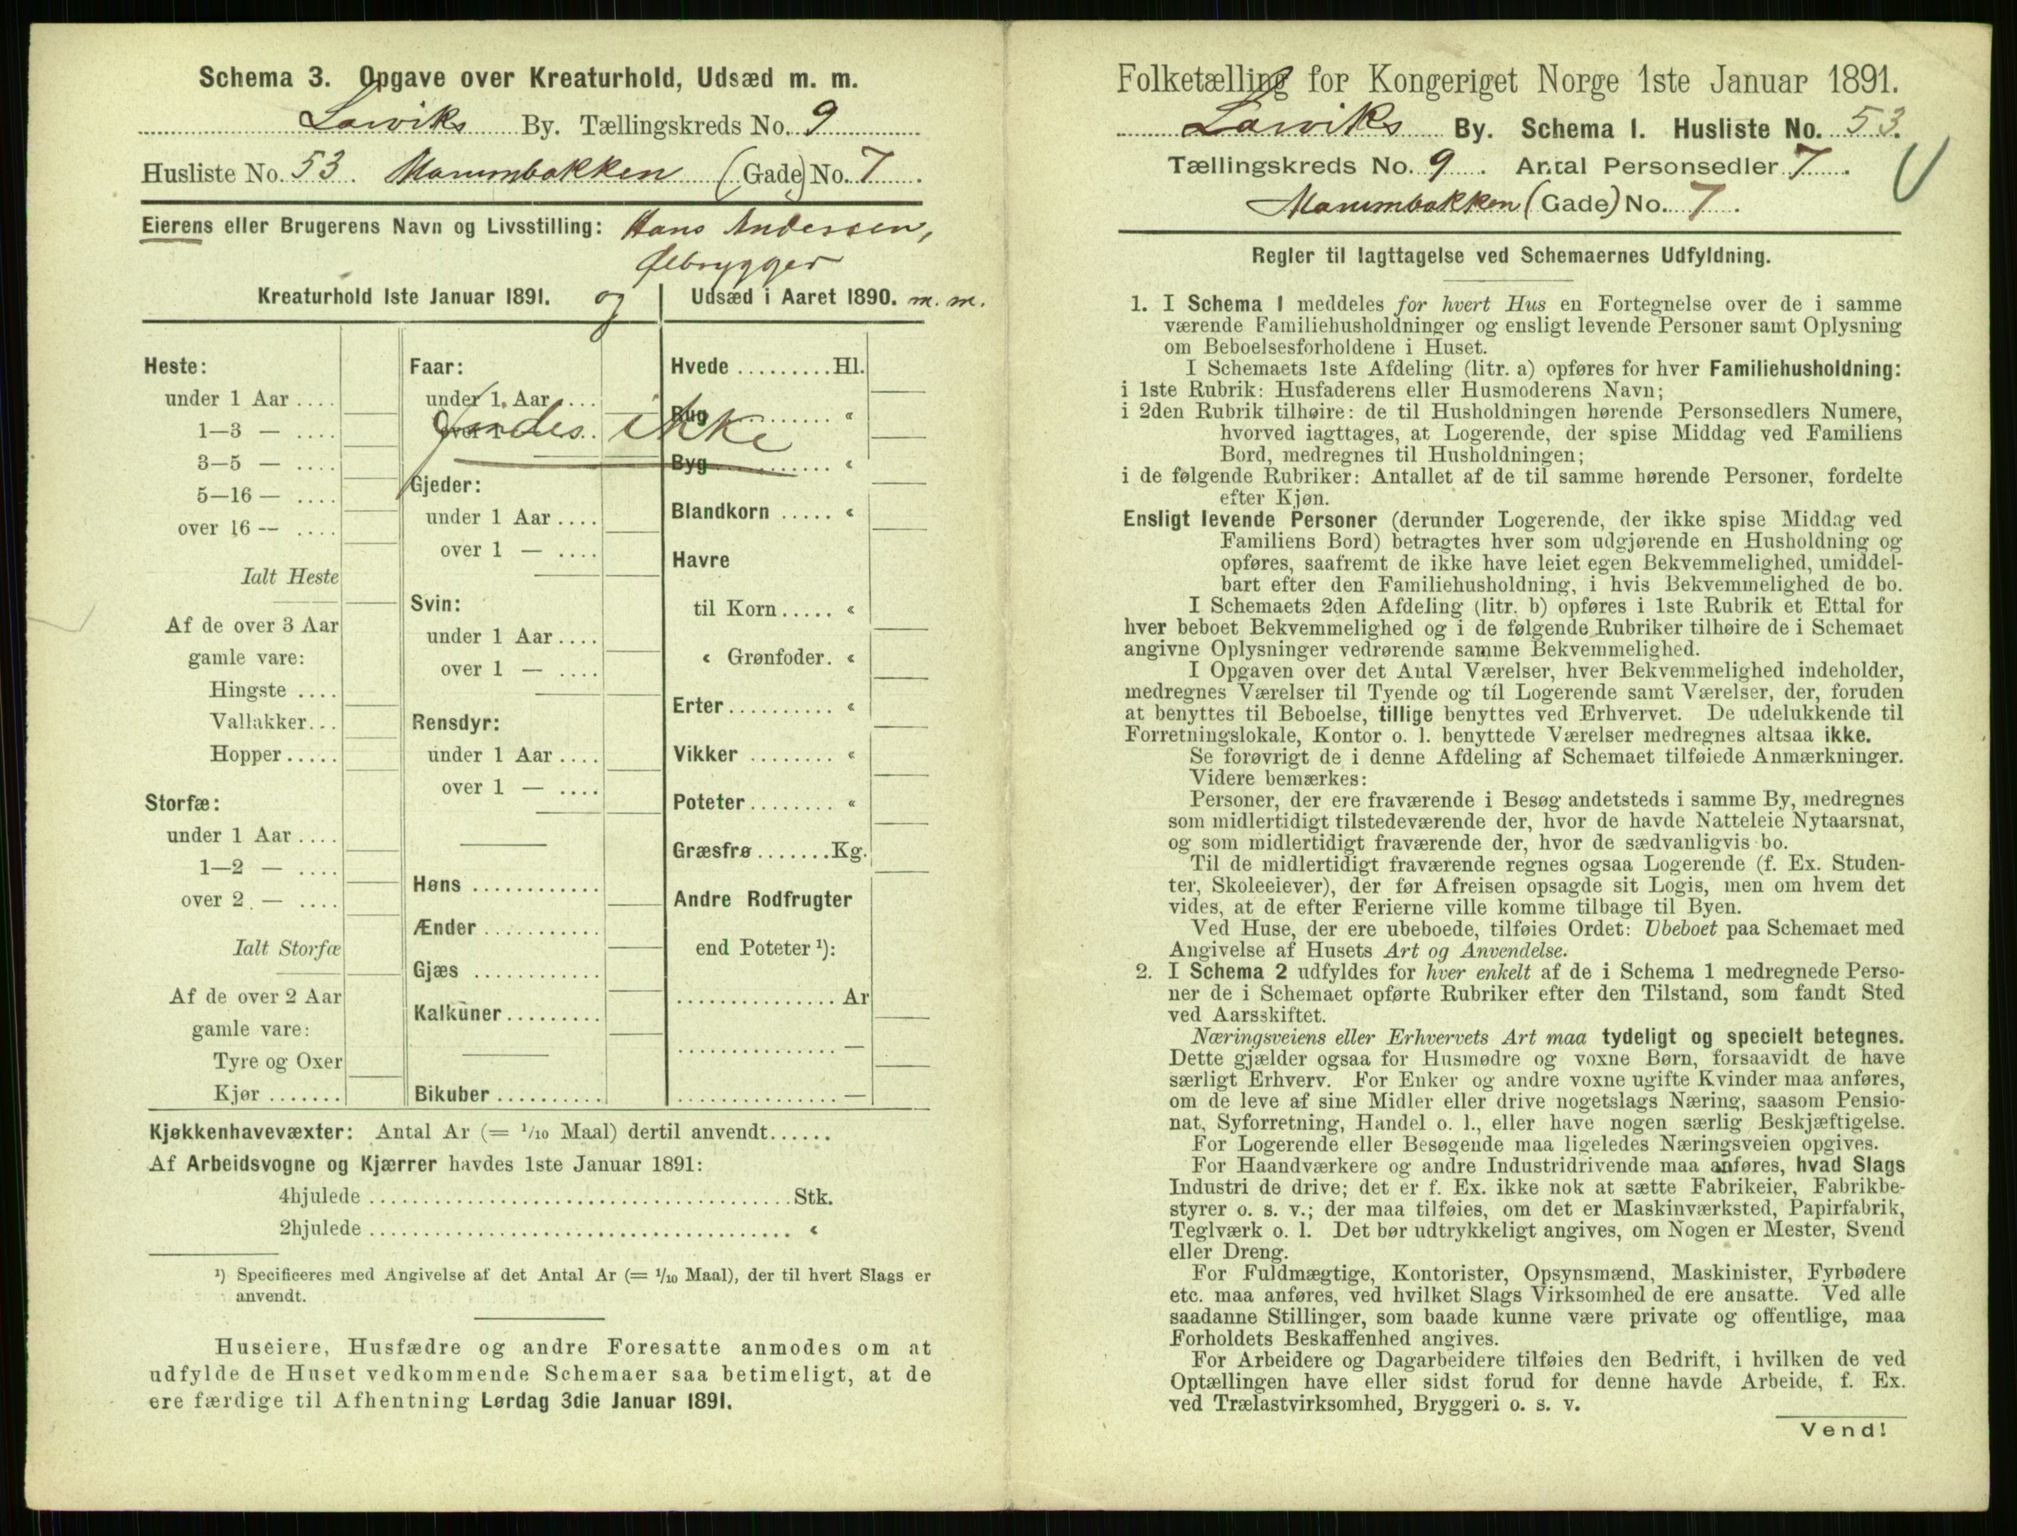 Schema 3. Opgave over Kreaturhold, Udsæd m. m.
Larviks By. Tællingskreds No. 9
Husliste No. 53. Marumbakken (Gade) No. 7.
Eierens eller Brugerens Navn og Livsstilling: Hans Andersen,
Ølbrygger
Kreaturhold 1ste Januar 1891. og Udsæd i Aaret 1890. m. m.
Heste:
under 1 Aar ....
1—3 — ....
3—5 — ....
5—16 — ....
over 16 — ....
Ialt Heste
Af de over 3 Aar
gamle vare:
Hingste ....
Vallakker...
Hopper.....
Storfæ:
under 1 Aar ....
1—2 — ....
over 2 — ....
Ialt Storfæ
Af de over 2 Aar
gamle vare:
Tyre og Oxer
Kjør .......
Faar:
under 1 Aar ....
over 1 — ....
Findes ikke
Gjeder:
under 1 Aar ....
over 1 — ....
Svin:
under 1 Aar ....
over 1 — ....
Rensdyr:
under 1 Aar ....
over 1 — ....
Høns ............
Ænder ...........
Gjæs ............
Kalkuner.........
Bikuber ..........
Hvede .........Hl.
Rug ......... «
Byg ......... «
Blandkorn ..... «
Havre
til Korn..... «
« Grønfoder. «
Erter.......... «
Vikker ........ «
Poteter........ «
Græsfrø .......Kg.
Andre Rodfrugter
end Poteter ¹):
............... Ar
............... —
............... —
Kjøkkenhavevæxter: Antal Ar (= 1/10 Maal) dertil anvendt......
Af Arbeidsvogne og Kjærrer havdes 1ste Januar 1891:
4hjulede ........................................ Stk.
2hjulede ........................................ «
¹) Specificeres med Angivelse af det Antal Ar (= 1/10 Maal), der til hvert Slags er
anvendt.
Huseiere, Husfædre og andre Foresatte anmodes om at
udfylde de Huset vedkommende Schemaer saa betimeligt, at de
ere færdige til Afhentning Lørdag 3die Januar 1891.
Folketælling for Kongeriget Norge 1ste Januar 1891.
Larviks By. Schema 1. Husliste No. 53.
Tællingskreds No. 9. Antal Personsedler 7.
Marumbakken (Gade) No. 7.
Regler til Iagttagelse ved Schemaernes Udfyldning.
1. I Schema 1 meddeles for hvert Hus en Fortegnelse over de i samme
værende Familiehusholdninger og ensligt levende Personer samt Oplysning
om Beboelsesforholdene i Huset.
I Schemaets 1ste Afdeling (litr. a) opføres for hver Familiehusholdning:
i 1ste Rubrik: Husfaderens eller Husmoderens Navn;
i 2den Rubrik tilhøire: de til Husholdningen hørende Personsedlers Numere,
hvorved iagttages, at Logerende, der spise Middag ved Familiens
Bord, medregnes til Husholdningen;
i de følgende Rubriker: Antallet af de til samme hørende Personer, fordelte
efter Kjøn.
Ensligt levende Personer (derunder Logerende, der ikke spise Middag ved
Familiens Bord) betragtes hver som udgjørende en Husholdning og
opføres, saafremt de ikke have leiet egen Bekvemmelighed, umiddel-
bart efter den Familiehusholdning, i hvis Bekvemmelighed de bo.
I Schemaets 2den Afdeling (litr. b) opføres i 1ste Rubrik et Ettal for
hver beboet Bekvemmelighed og i de følgende Rubriker tilhøire de i Schemaet
angivne Oplysninger vedrørende samme Bekvemmelighed.
I Opgaven over det Antal Værelser, hver Bekvemmelighed indeholder,
medregnes Værelser til Tyende og til Logerende samt Værelser, der, foruden
at benyttes til Beboelse, tillige benyttes ved Erhvervet. De udelukkende til
Forretningslokale, Kontor o. l. benyttede Værelser medregnes altsaa ikke.
Se forøvrigt de i denne Afdeling af Schemaet tilføiede Anmærkninger.
Videre bemærkes:
Personer, der ere fraværende i Besøg andetsteds i samme By, medregnes
som midlertidigt tilstedeværende der, hvor de havde Natteleie Nytaarsnat,
og som midlertidigt fraværende der, hvor de sædvanligvis bo.
Til de midlertidigt fraværende regnes ogsaa Logerende (f. Ex. Studen-
ter, Skoleeiever), der før Afreisen opsagde sit Logis, men om hvem det
vides, at de efter Ferierne ville komme tilbage til Byen.
Ved Huse, der ere ubeboede, tilføies Ordet: Ubeboet paa Schemaet med
Angivelse af Husets Art og Anvendelse.
2. I Schema 2 udfyldes for hver enkelt af de i Schema 1 medregnede Perso-
ner de i Schemaet opførte Rubriker efter den Tilstand, som fandt Sted
ved Aarsskiftet.
Næringsveiens eller Erhvervets Art maa tydeligt og specielt betegnes.
Dette gjælder ogsaa for Husmødre og voxne Børn, forsaavidt de have
særligt Erhverv. For Enker og andre voxne ugifte Kvinder maa anføres,
om de leve af sine Midler eller drive nogetslags Næring, saasom Pensio-
nat, Syforretning, Handel o. l., eller have nogen særlig Beskjæftigelse.
For Logerende eller Besøgende maa ligeledes Næringsveien opgives.
For Haandværkere og andre Industridrivende maa anføres, hvad Slags
Industri de drive; det er f. Ex. ikke nok at sætte Fabrikeier, Fabrikbe-
styrer o. s. v.; der maa tilføies, om det er Maskinværksted, Papirfabrik,
Teglværk o. l. Det bør udtrykkeligt angives, om Nogen er Mester, Svend
eller Dreng.
For Fuldmægtige, Kontorister, Opsynsmænd, Maskinister, Fyrbødere
etc. maa anføres, ved hvilket Slags Virksomhed de ere ansatte. Ved alle
saadanne Stillinger, som baade kunne være private og offentlige, maa
Forholdets Beskaffenhed angives.
For Arbeidere og Dagarbeidere tilføies den Bedrift, i hvilken de ved
Optællingen have eller sidst forud for denne havde Arbeide, f. Ex.
ved Trælastvirksomhed, Bryggeri o. s. v.
Vend!